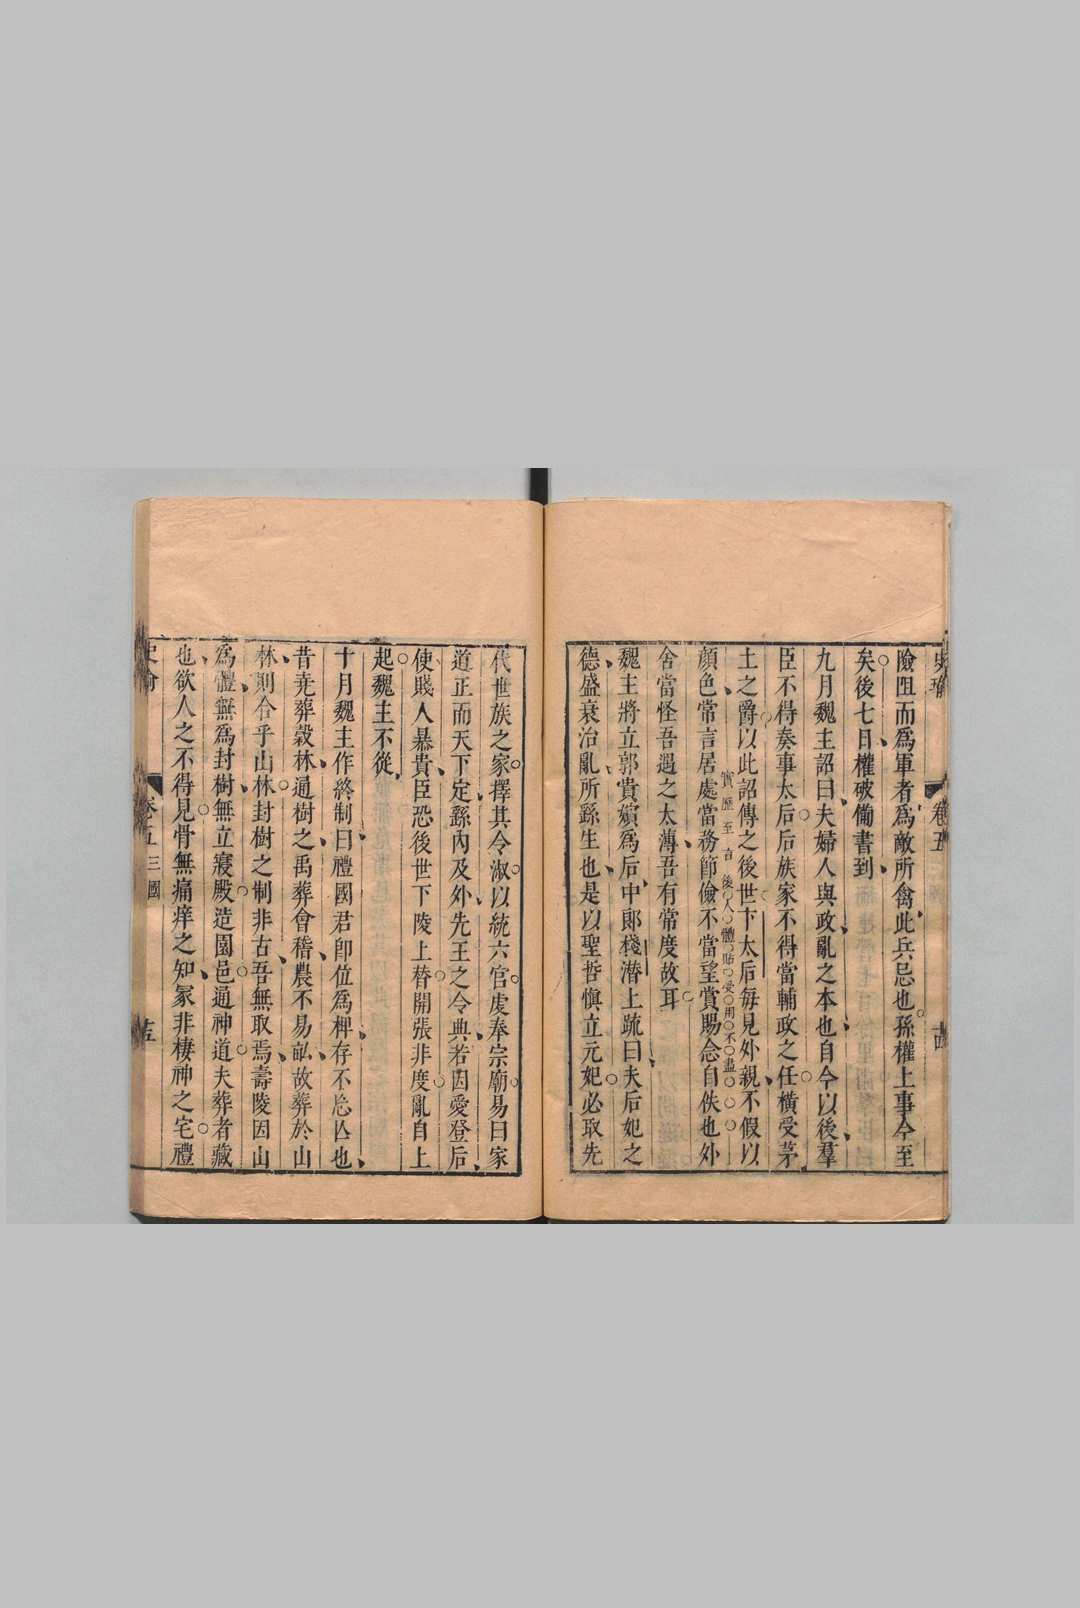 險阻而為軍者為敵所禽此兵忌也孫權上事今至
矣後七日權破僃書到
九月魏主詔曰夫婦人與政亂之本也自今以後羣
臣不得奏事太后后族家不得當輔政之任橫受茅
土之爵以此詔傳之後世卞太后每見外親不假以
顏色常言居處當務節儉不當望賞賜念自佚也外
舍當怪吾遇之太薄吾有常度故耳
魏主將立郭貴嬪為后中郞棧潛上疏曰夫后妃之
德盛衰治亂所繇生也是以聖哲愼立元妃必取先
代世族之家擇其令淑以統六官虔奉宗廟易曰家
道正而天下定繇內及外先王之令典若因愛登后
使賤人暴貴臣恐後世下陵上替開張非度亂自上
起魏主不從
十月魏主作終制曰禮國君卽位為椑存不忘亾也
昔堯葬榖林通樹之禹葬會稽農不易畝故葬於山
林則合乎山林封樹之制非古吾無取焉壽陵因山
為體無為封樹無立寢殿造園邑通神道夫葬者藏
也欲人之不得見骨無痛痒之知冢非棲神之宅禮
卷五
三國